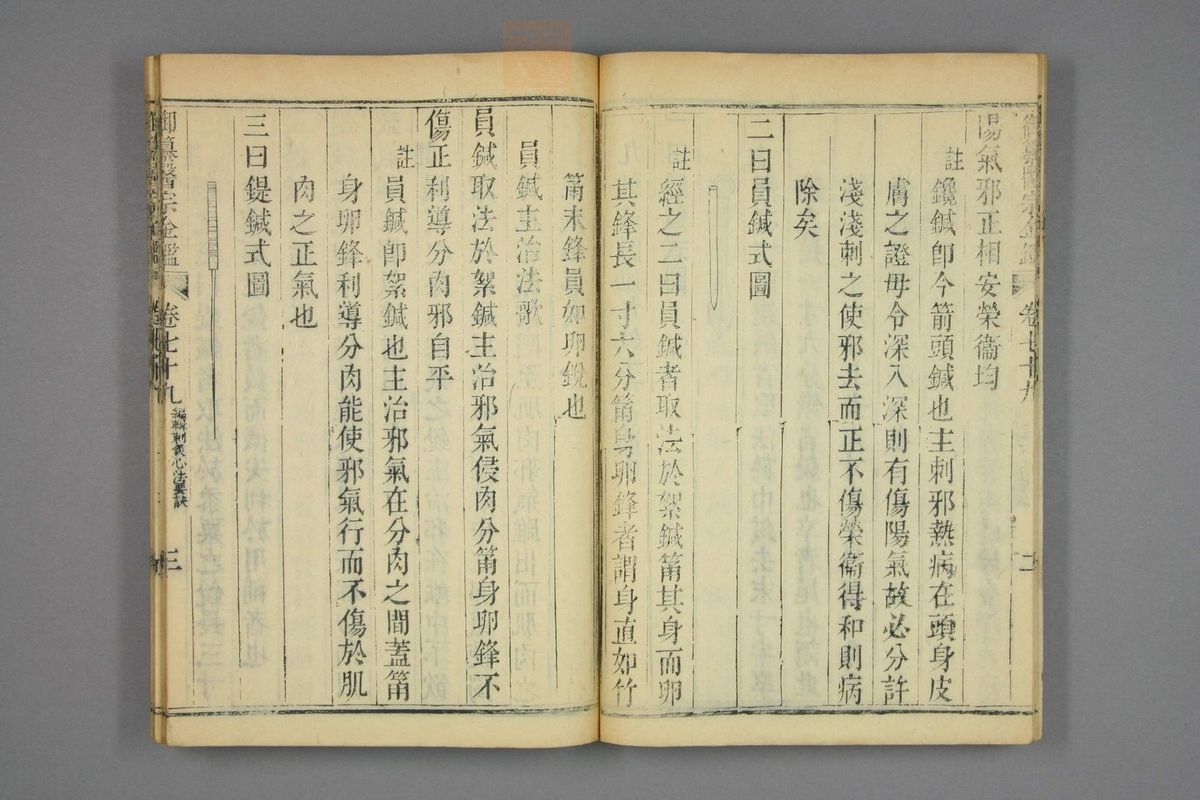 陽氣邪正相安榮衞均
註 鑱鍼卽今箭頭鍼也主刺邪熱病在頭身皮
膚之證毋令深入深則有傷陽氣故必分許
淺淺刺之使邪去而正不傷榮衞得和則病
除矣
二曰員鍼式圖
註 經之二曰員鍼者取法於絮鍼筩其身而卵
其鋒長一寸六分筩身卵鋒者謂身直如竹
筩末鋒員如卵銳也
員鍼主治法歌
員鍼取法於絮鍼主治邪氣侵肉分筩身卵鋒不
傷正利導分肉邪自平
註 員鍼卽絮鍼也主治邪氣在分肉之間蓋筩
身卵鋒利導分肉能使邪氣行而不傷於肌
肉之正氣也
三曰鍉鍼式圖
御纂醫宗金鑑 卷七十九 編輯刺灸心法要訣 三